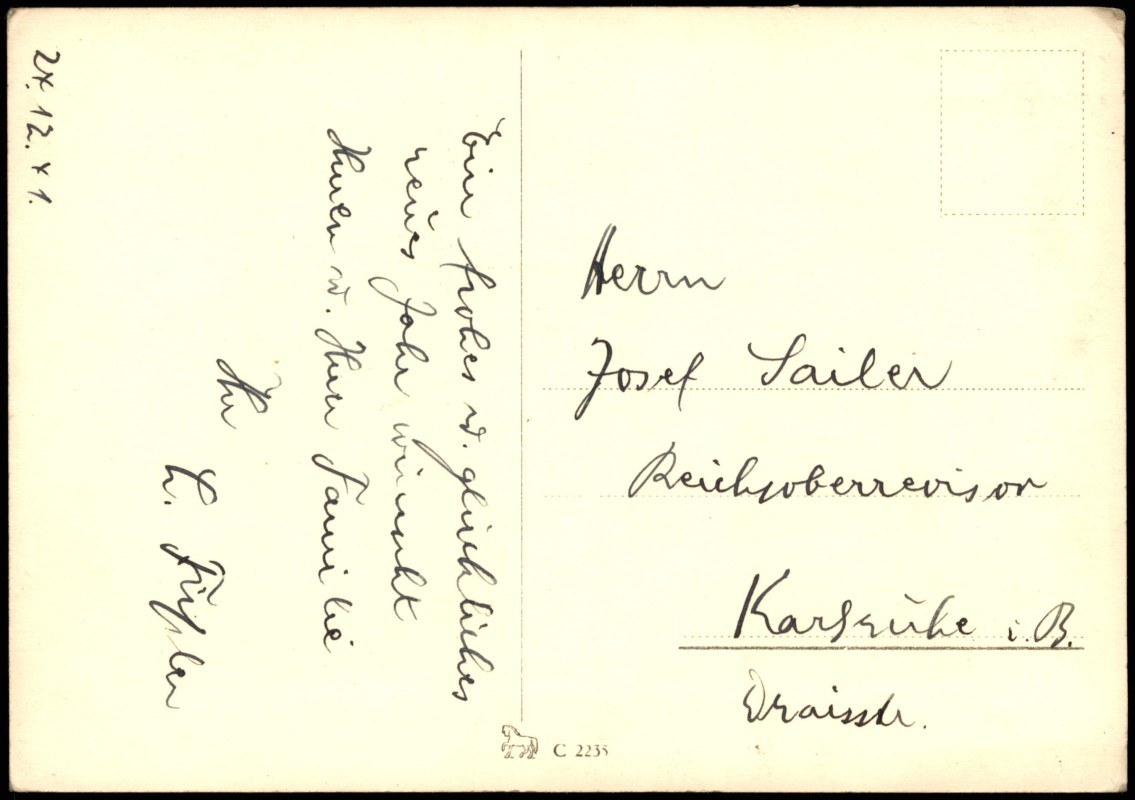 27.12.41.
Ein frohes u. glückliches
neues Jahr wünscht
Ihnen u. Ihrer Familie
Ihr
L.
Herrn
Josef Sailer
Reichsoberrevisor
Karlsruhe i. B.
Draisstr.
C 2235